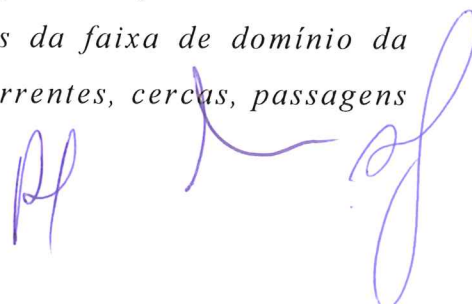 s da faixa de domínio da
rrentes, cercas, passagens